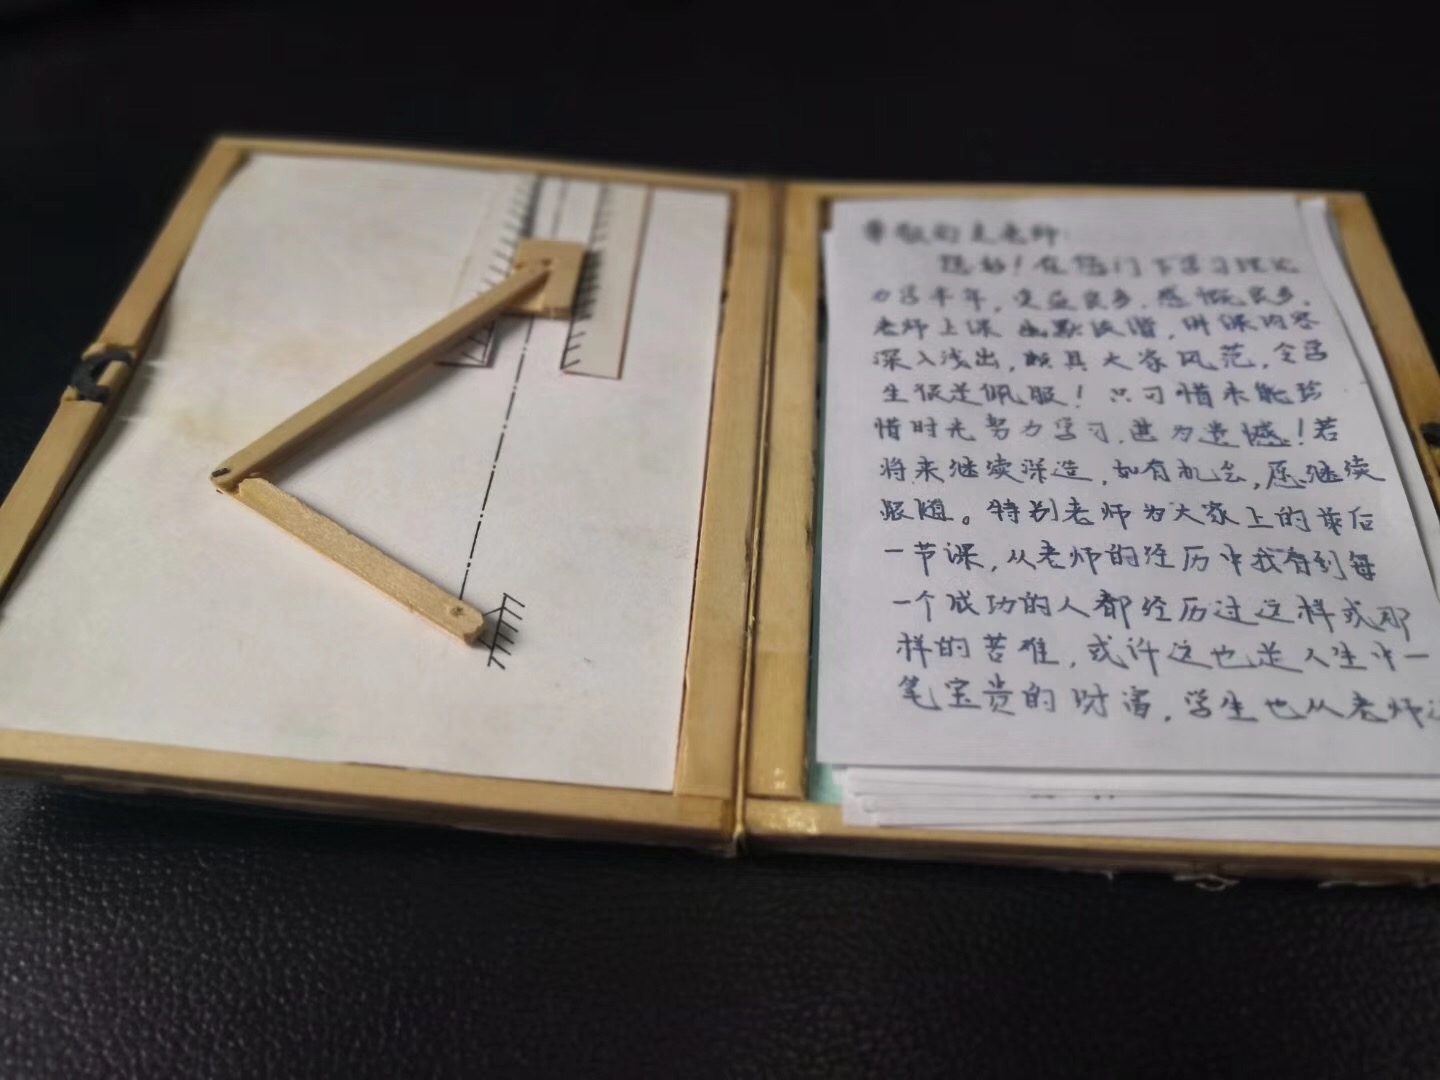 尊敬的王老师
您好！在您门下学习理论
力学半年，受益良多，感慨良多。
老师上课幽默诙谐，讲课内容
深入浅出，颇具大家风范，令学
生很是佩服！只可惜未能珍
惜时光努力学习，甚为遗憾！若
将来继续深造，如有机会，愿继续
跟随。特别老师为大家上的最后
一节课，从老师的经历中我看到每
一个成功的人都经历过这样或那
样的苦难，或许这也是人生中一
笔宝贵的财富，学生也从老师